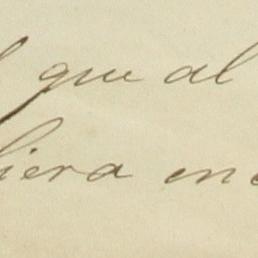 que al
iera en